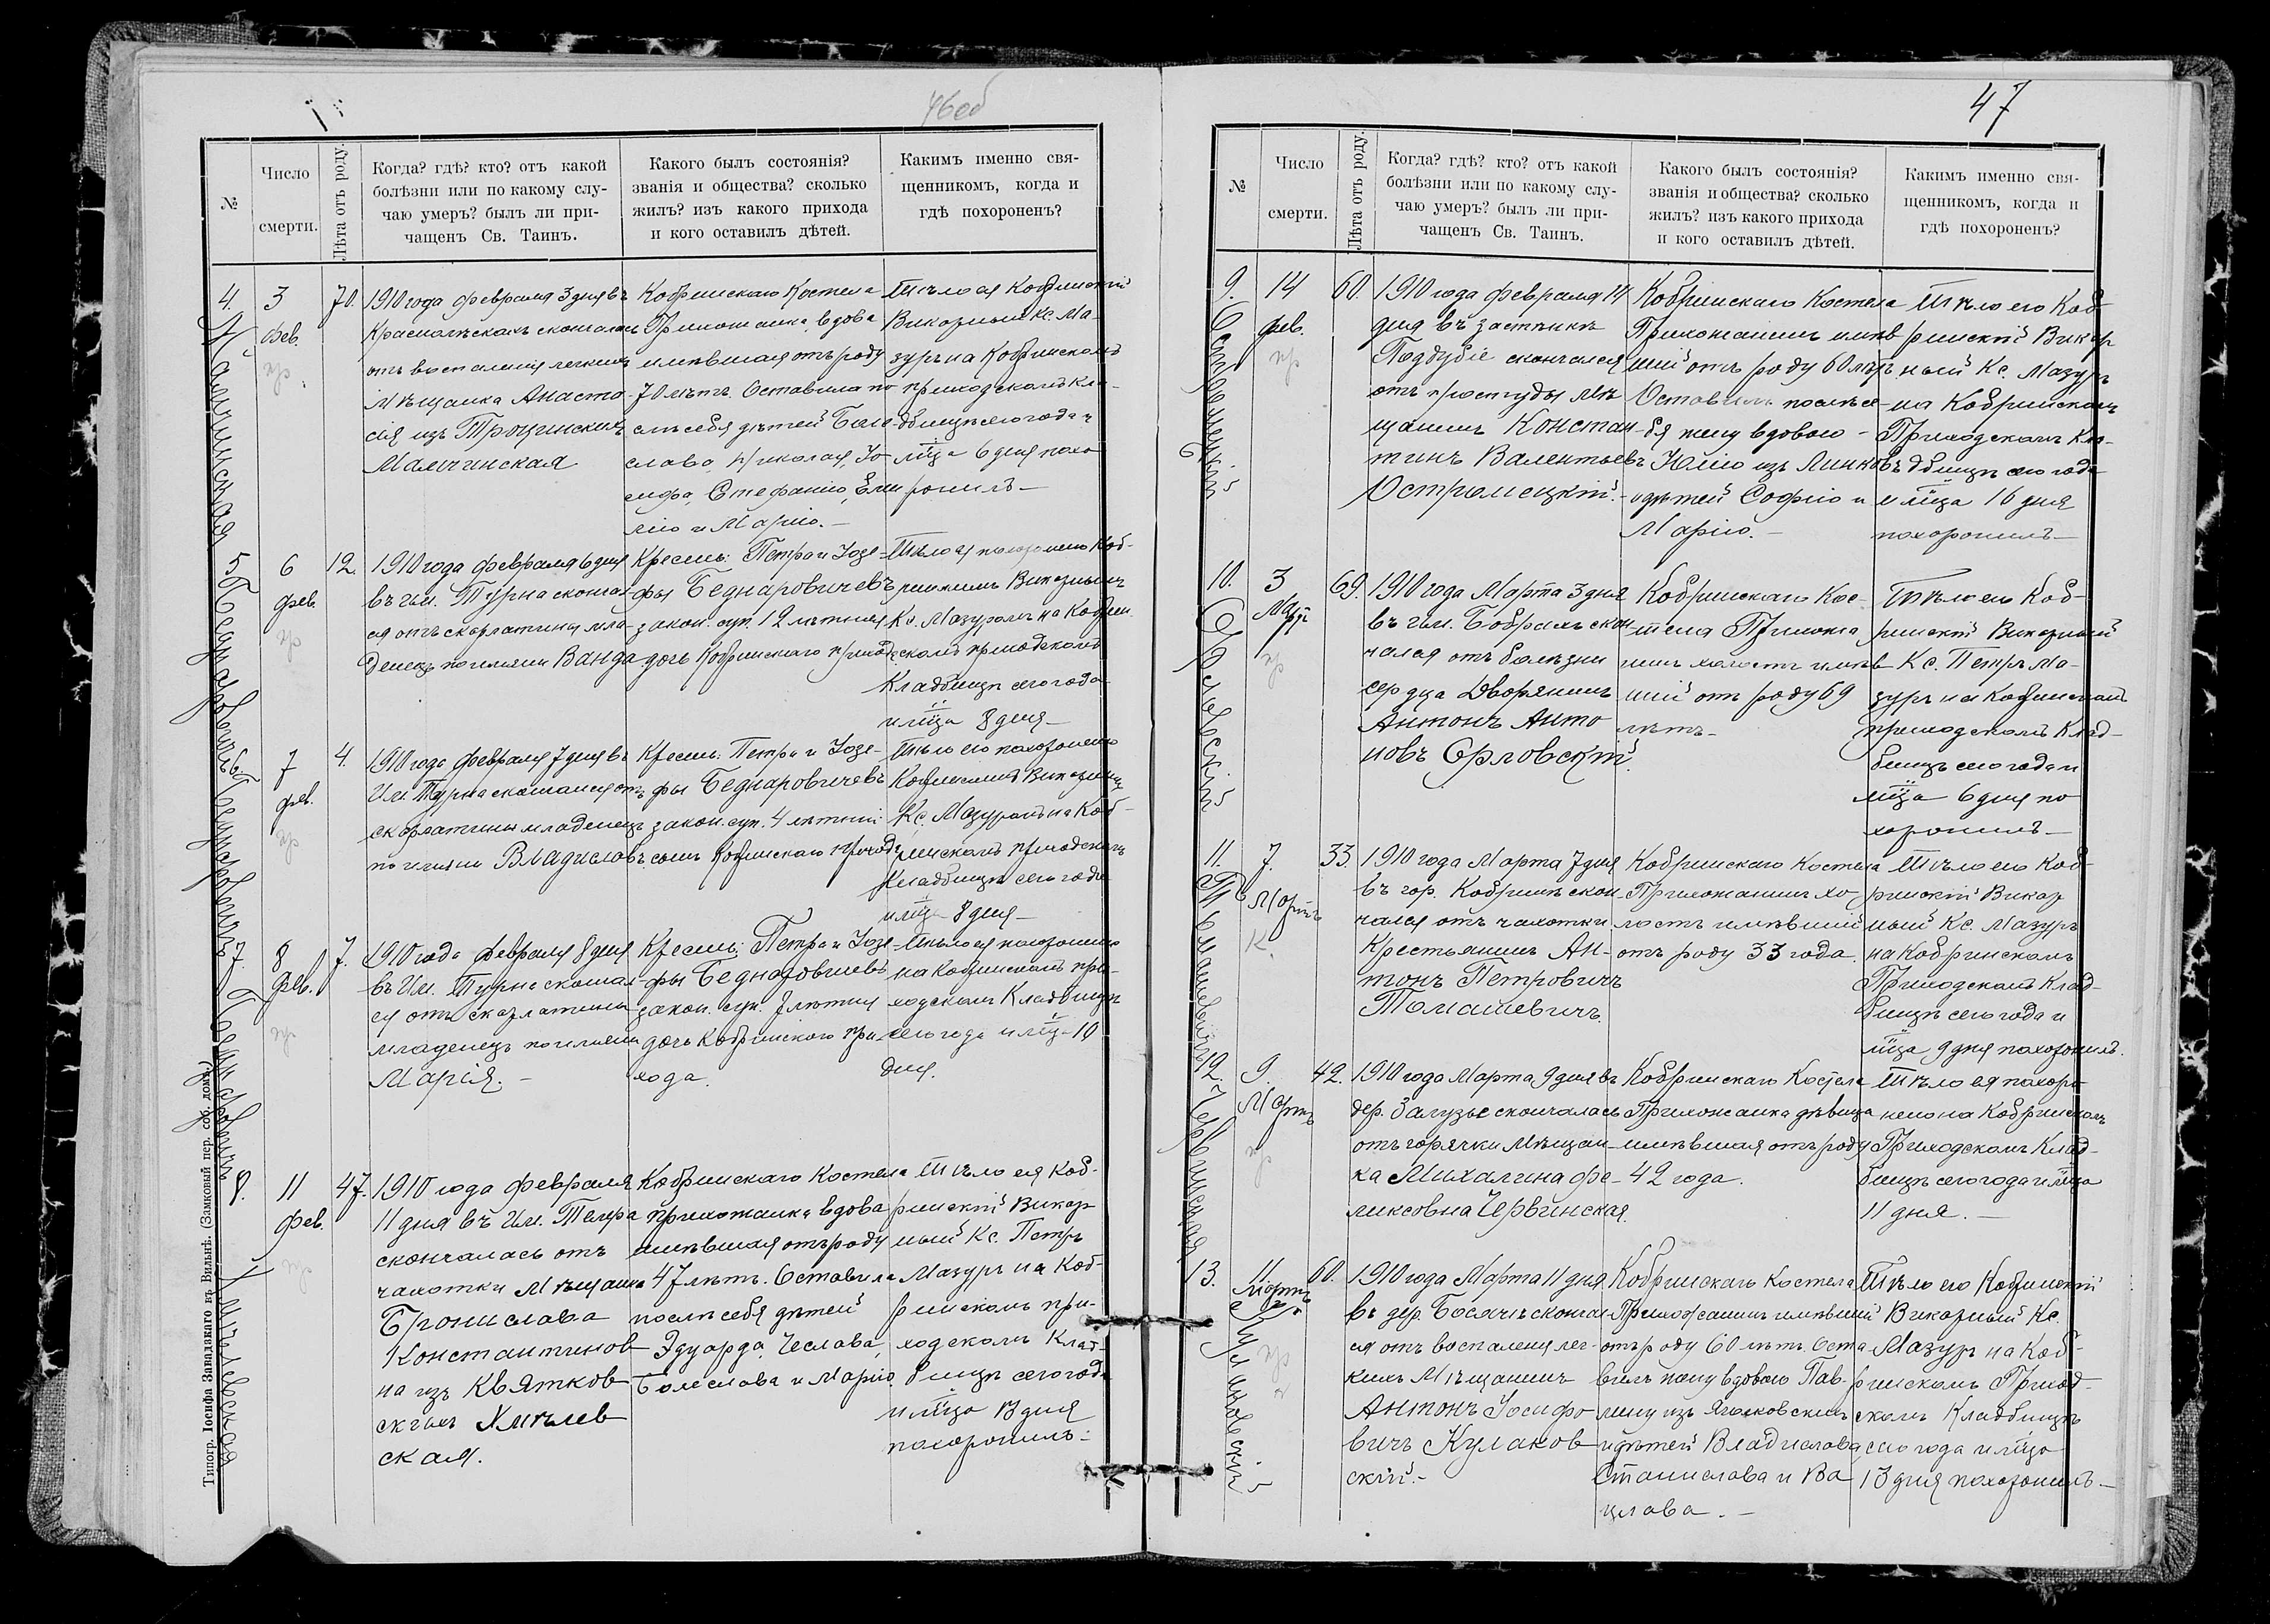 46 об
№
Число
смерти.
Лѣта отъ роду.
Когда? гдѣ? кто? отъ какой
болѣзни или по какому слу-
чаю умеръ? былъ ли при-
чащенъ Св. Таинъ.
Какого былъ состоянія?
званія и общества? сколько
жилъ? изъ какого прихода
и кого оставилъ дѣтей.
Какимъ именно свя-
щенникомъ, когда и
гдѣ похороненъ?
4.
Малчинская
3
Фев.
пр
70.
1910 года февраля 3 дня въ
скончалась
отъ воспаленія легкихъ
Мѣщанка Анаста-
сія изъ Трощинскихъ
Малчинская
Кобринскаго Костела
Прихожанка, вдова
имѣвшая отъ роду
70 лѣтъ. Оставила по
слѣ себя дѣтей Боле-
слава, Николая, Іо-
сифа, Стефанію, Еми
лію и Марію.–
Тѣло ея Кобринскій
Викарный Кс. Ма-
зуръ на Кобринскомъ
приходскомъ кла-
дбищѣ сего года и
м̃ца 6 дня похо
ронилъ–
5
Беднаровичъ
6
фев.
пр
12.
1910 года февраля 6 дня
въ им. Турна сконча-
ся отъ скарлатины мла-
денецъ по имени Ванда
Кресть. Петра и Іозе-
фы Беднаровичевъ
закон. суп. 12 лѣтняя
дочь Кобринскаго прихода
Тѣло ея похоронено Коб-
ринскимъ Викарнымъ
Кс. Мазуромъ на Кобрин
скомъ приходскомъ
Кладбищѣ сего года
и м̃ца 8 дня–
6
Беднаровичъ
7
фев.
пр
4.
1910 года февраля 7 дня въ
Им. Турна скончался отъ
скарлатины младенецъ
по имени Владиславъ
Кресть. Петра и Іозе-
фы Беднаровичевъ
закон. суп. 4 лѣтній
сынъ Кобринскаго прихода
Тѣло его похоронено
Кобринскимъ Викарнымъ
Кс. Мазуромъ на Коб-
ринскомъ приходскомъ
Кладбищѣ сего года
и м̃ца 8 дня–
7.
Беднаровичъ
8
фев.
пр
7.
1910 года февраля 8 дня
въ Им. Турна сконча-
ся отъ скарлатины
младенецъ по имени
Марія.–
Кресть. Петра и Іозе-
фы Беднаровичевъ
закон. суп. 7 лѣтняя
дочь Кобринскаго при-
хода.
Тѣло ея похоронено
на Кобринскомъ при-
ходскомъ Кладбищѣ
сего года и м̃ца 10
дня.
8.
Хмѣлевская
11
фев.
пр
47.
1910 года февраля
11 дня въ Им.
скончалась отъ
чахотки Мѣщанка
Бронислава
Константинов-
на изъ Квятков-
скихъ Хмѣлев
ская.
Кобринскаго Костела
прихожанка вдова
имѣвшая отъ роду
47 лѣтъ. Оставила
послѣ себя дѣтей
Эдуарда, Чеслава,
Болеслава и Марію
Тѣло ея Коб-
ринскій Викар
ный Кс. Петръ
Мазуръ на Коб-
ринскомъ при-
ходскомъ Клад-
бищѣ сего года
и м̃ца 13 дня
похоронилъ–
Типогр. Іосифа Завадзкаго въ Вильнѣ. (Замковый пер. соб. домъ.)
47
№
Число
смерти.
Лѣта отъ роду.
Когда? гдѣ? кто? отъ какой
болѣзни или по какому слу-
чаю умеръ? былъ ли при-
чащенъ Св. Таинъ.
Какого былъ состоянія?
званія и общества? сколько
жилъ? изъ какого прихода
и кого оставилъ дѣтей.
Какимъ именно свя-
щенникомъ, когда и
гдѣ похороненъ?
9.
Остромецкій
14
фев.
пр
60.
1910 года февраля 14
дня въ застѣнкѣ
Поздубіе скончался
отъ простуды мѣ
щанинъ Констан-
тинъ Валентьевъ
Остромецкій.
Кобринскаго Костела
Прихожанинъ имѣв
шій отъ роду 60 лѣтъ
Оставилъ послѣ се-
бя жену вдовою –
Юлію изъ Линковъ
и дѣтей Софію и
Марію.–
Тѣло его Коб-
ринскій Викар
ный Кс. Мазуръ
на Кобринскомъ
Приходскомъ Кла-
дбищѣ сего года
и м̃ца 16 дня
похоронилъ–
10.
Орловскій
3
Март
пр
69.
1910 года Марта 3 дня
въ им. Бобрахъ скон-
чался отъ болѣзни
сердца Дворянинъ
Антонъ Анто
новъ Орловскій.
Кобринскаго Кос-
тела Прихожа
нинъ холостъ имѣв
шій отъ роду 69
лѣтъ–
Тѣло его Коб-
ринскій Викарный
Кс. Петръ Ма-
зуръ на Кобринскомъ
приходскомъ Клад-
бищѣ сего года и
м̃ца 6 дня по
хоронилъ–
11.
Томашевичъ
7.
Мартъ
К.
33.
1910 года Марта 7 дня
въ гор. Кобринѣ скон-
чался отъ чахотки
Крестьянинъ Ан-
тонъ Петровичъ
Томашевичъ.
Кобринскаго Костела
Прихожанинъ хо-
лостъ имѣвшій
отъ роду 33 года.
Тѣло его Коб-
ринскій Викар
ный Кс. Мазуръ
на Кобринскомъ
Приходскомъ Клад-
бищѣ сего года и
м̃ца 9 дня похоронилъ.
12.
Червинская
9.
Мартъ
пр
42.
1910 года Марта 9 дня въ
дер. Загузье скончалась
отъ горячки Мѣщан-
ка Михалина Фе-
ликсовна Червинская.
Кобринскаго Костела
Прихожанка дѣвица
имѣвшая отъ роду
42 года.
Тѣло ея похоро
нено на Кобринскомъ
Приходскомъ Клад-
бищѣ сего года и м̃ца
11 дня.–
13.
Кулаковскій
11
Мартъ
пр
60.
1910 года Марта 11 дня
въ дер. Босячъ сконча-
ся отъ воспаленія лег-
кихъ Мѣщанинъ
Антонъ Іосифо
вичъ Кулаков
скій.–
Кобринскаго Костела
Прихожанинъ имѣвшій
отъ роду 60 лѣтъ. Оста
вилъ жену вдовою Пав-
лину изъ
и дѣтей Владислава,
Станислава и Ва
цлава.–
Тѣло его Кобринскій
Викарный Кс.
Мазуръ на Коб-
ринскомъ Приход-
скомъ Кладбищѣ
сего года и м̃ца
13 дня похоронилъ–